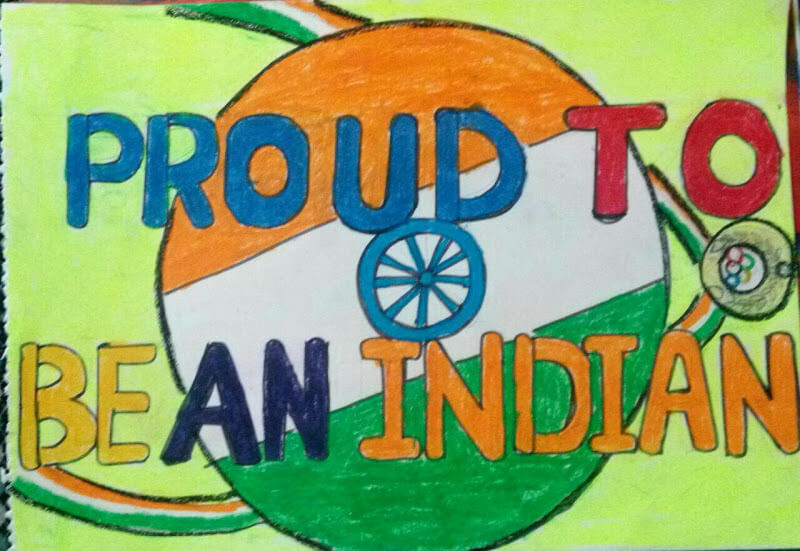 PROUD TO
BE AN INDIAN